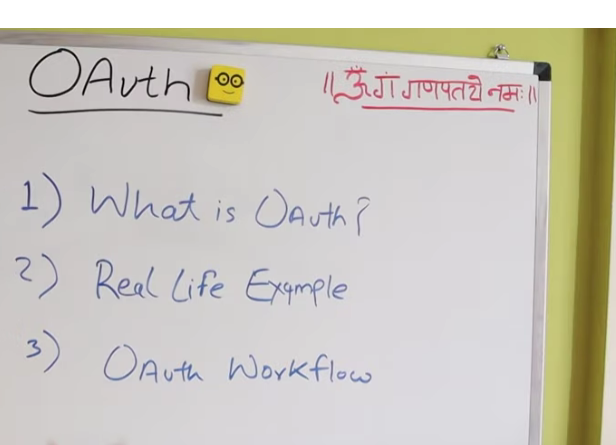 OAuth
॥ ॐ गं गणपतये नमः ॥
1) What is OAuth?
2) Real Life Example
3) OAuth Workflow